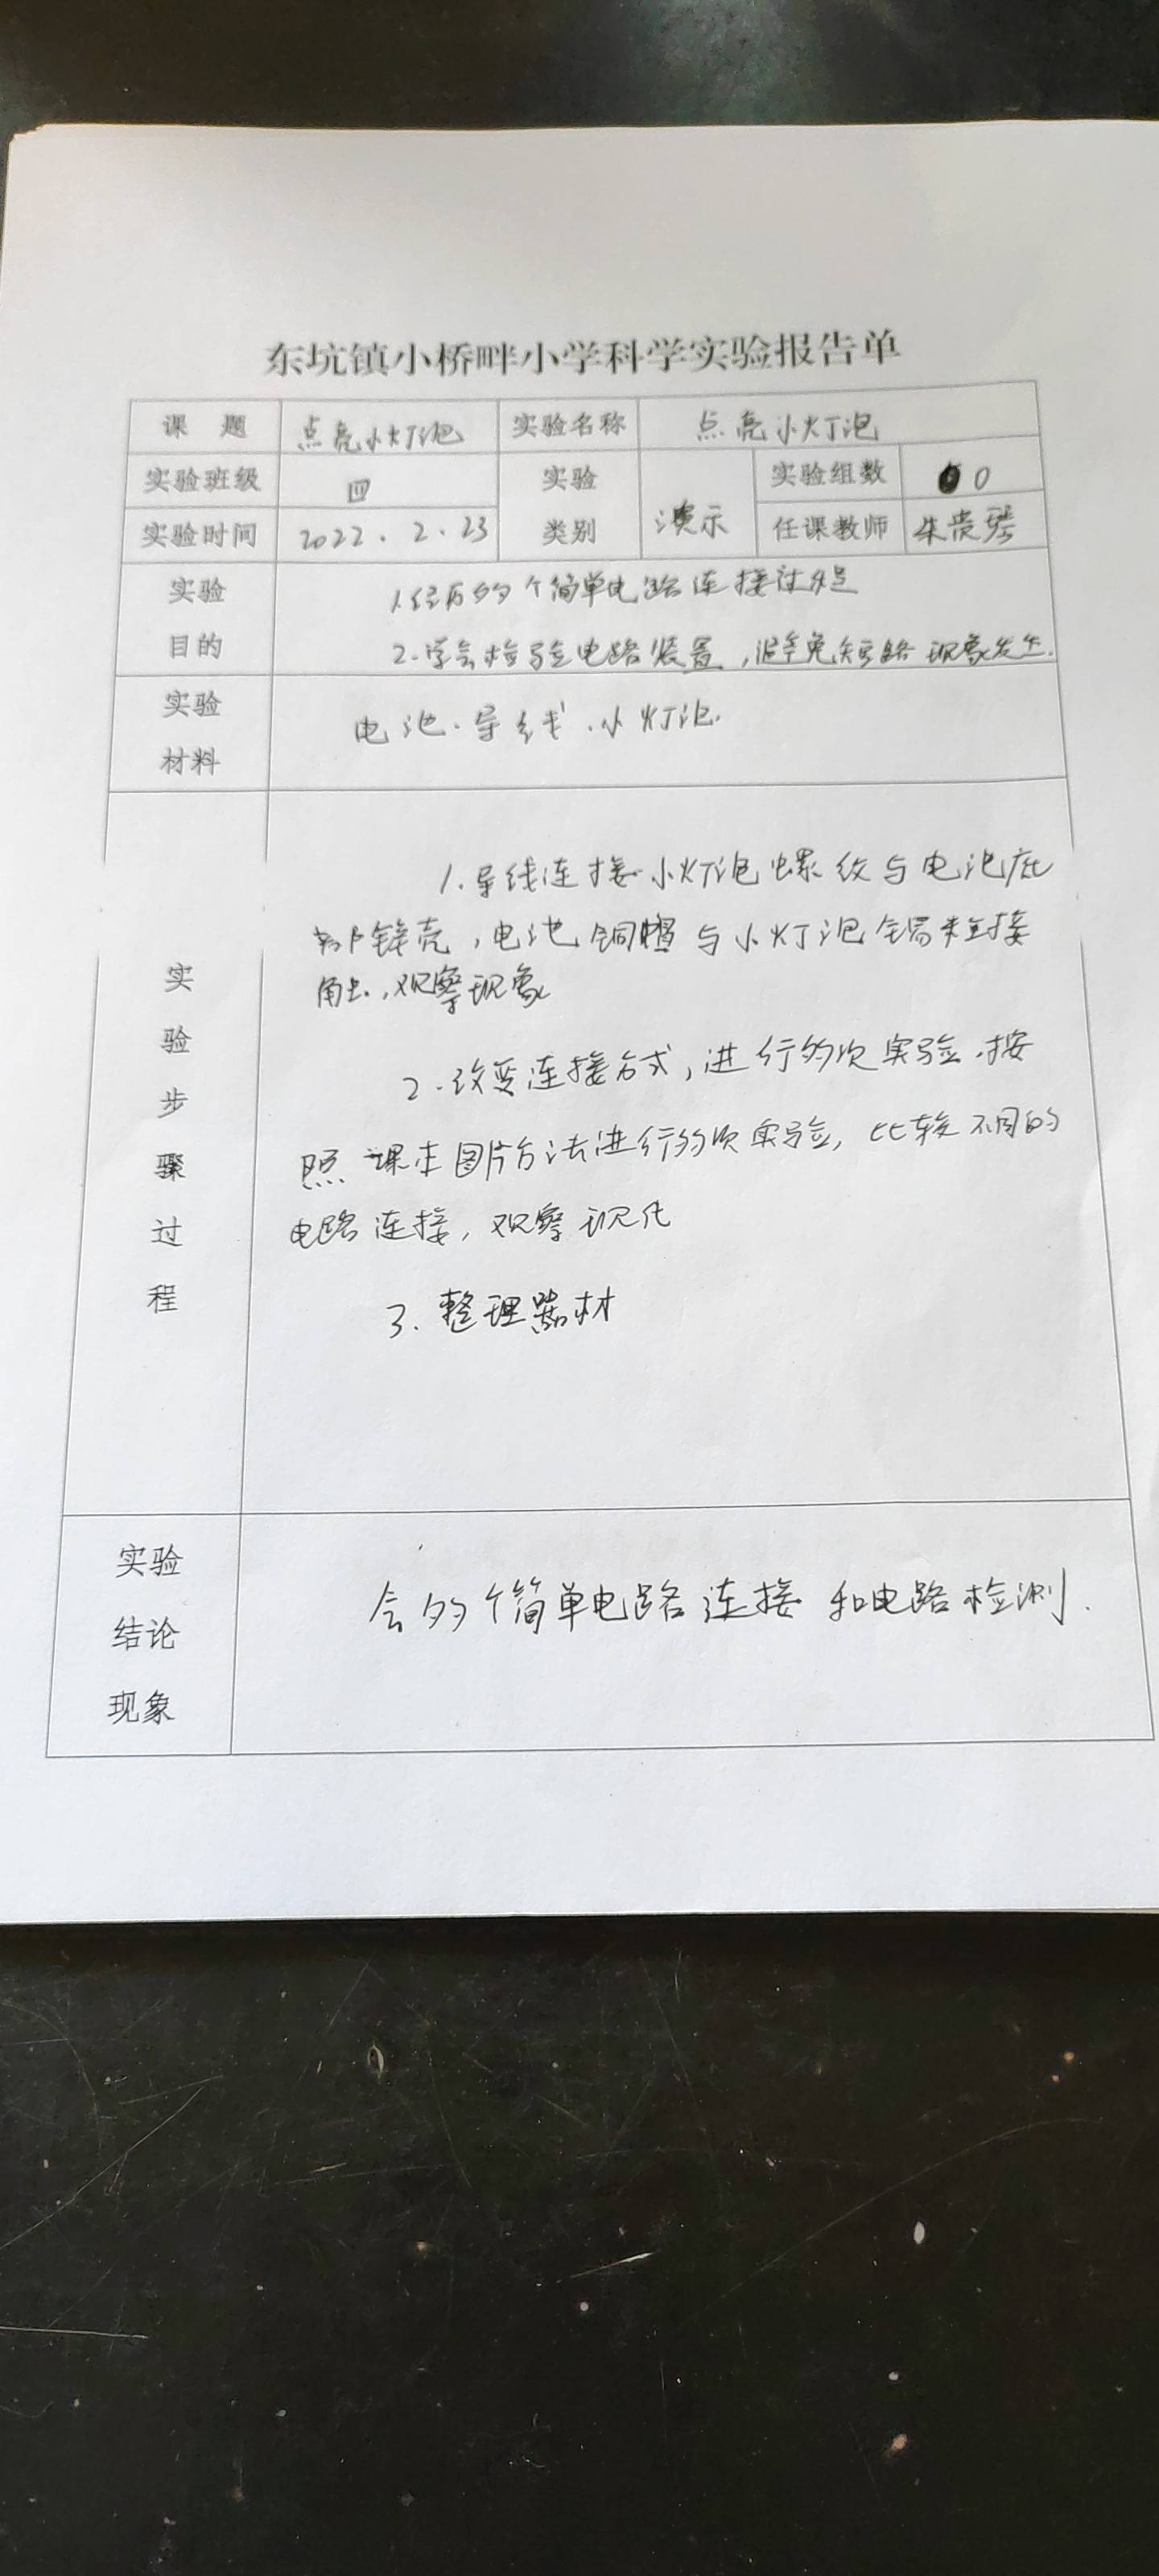 东坑镇小桥畔小学科学实验报告单
课 题 点亮小灯泡 实验名称 点亮小灯泡
实验班级 四 实验 类别 演示 实验组数 0
实验时间 2022.2.23 任课教师 朱贵琴
实验 目的 1.经历多个简单电路连接过程
2.学会检验电路装置,避免短路现象发生.
实验 材料 电池.导线.小灯泡.
实验步骤过程
1.导线连接小灯泡螺纹与电池底
部锌壳,电池铜帽与小灯泡锡粒接
触.,观察现象
2.改变连接方式,进行多次实验.按
照课本图片方法进行多次实验,比较不同的
电路连接,观察现化
3.整理器材
实验 结论 现象 会多个简单电路连接和电路检测.